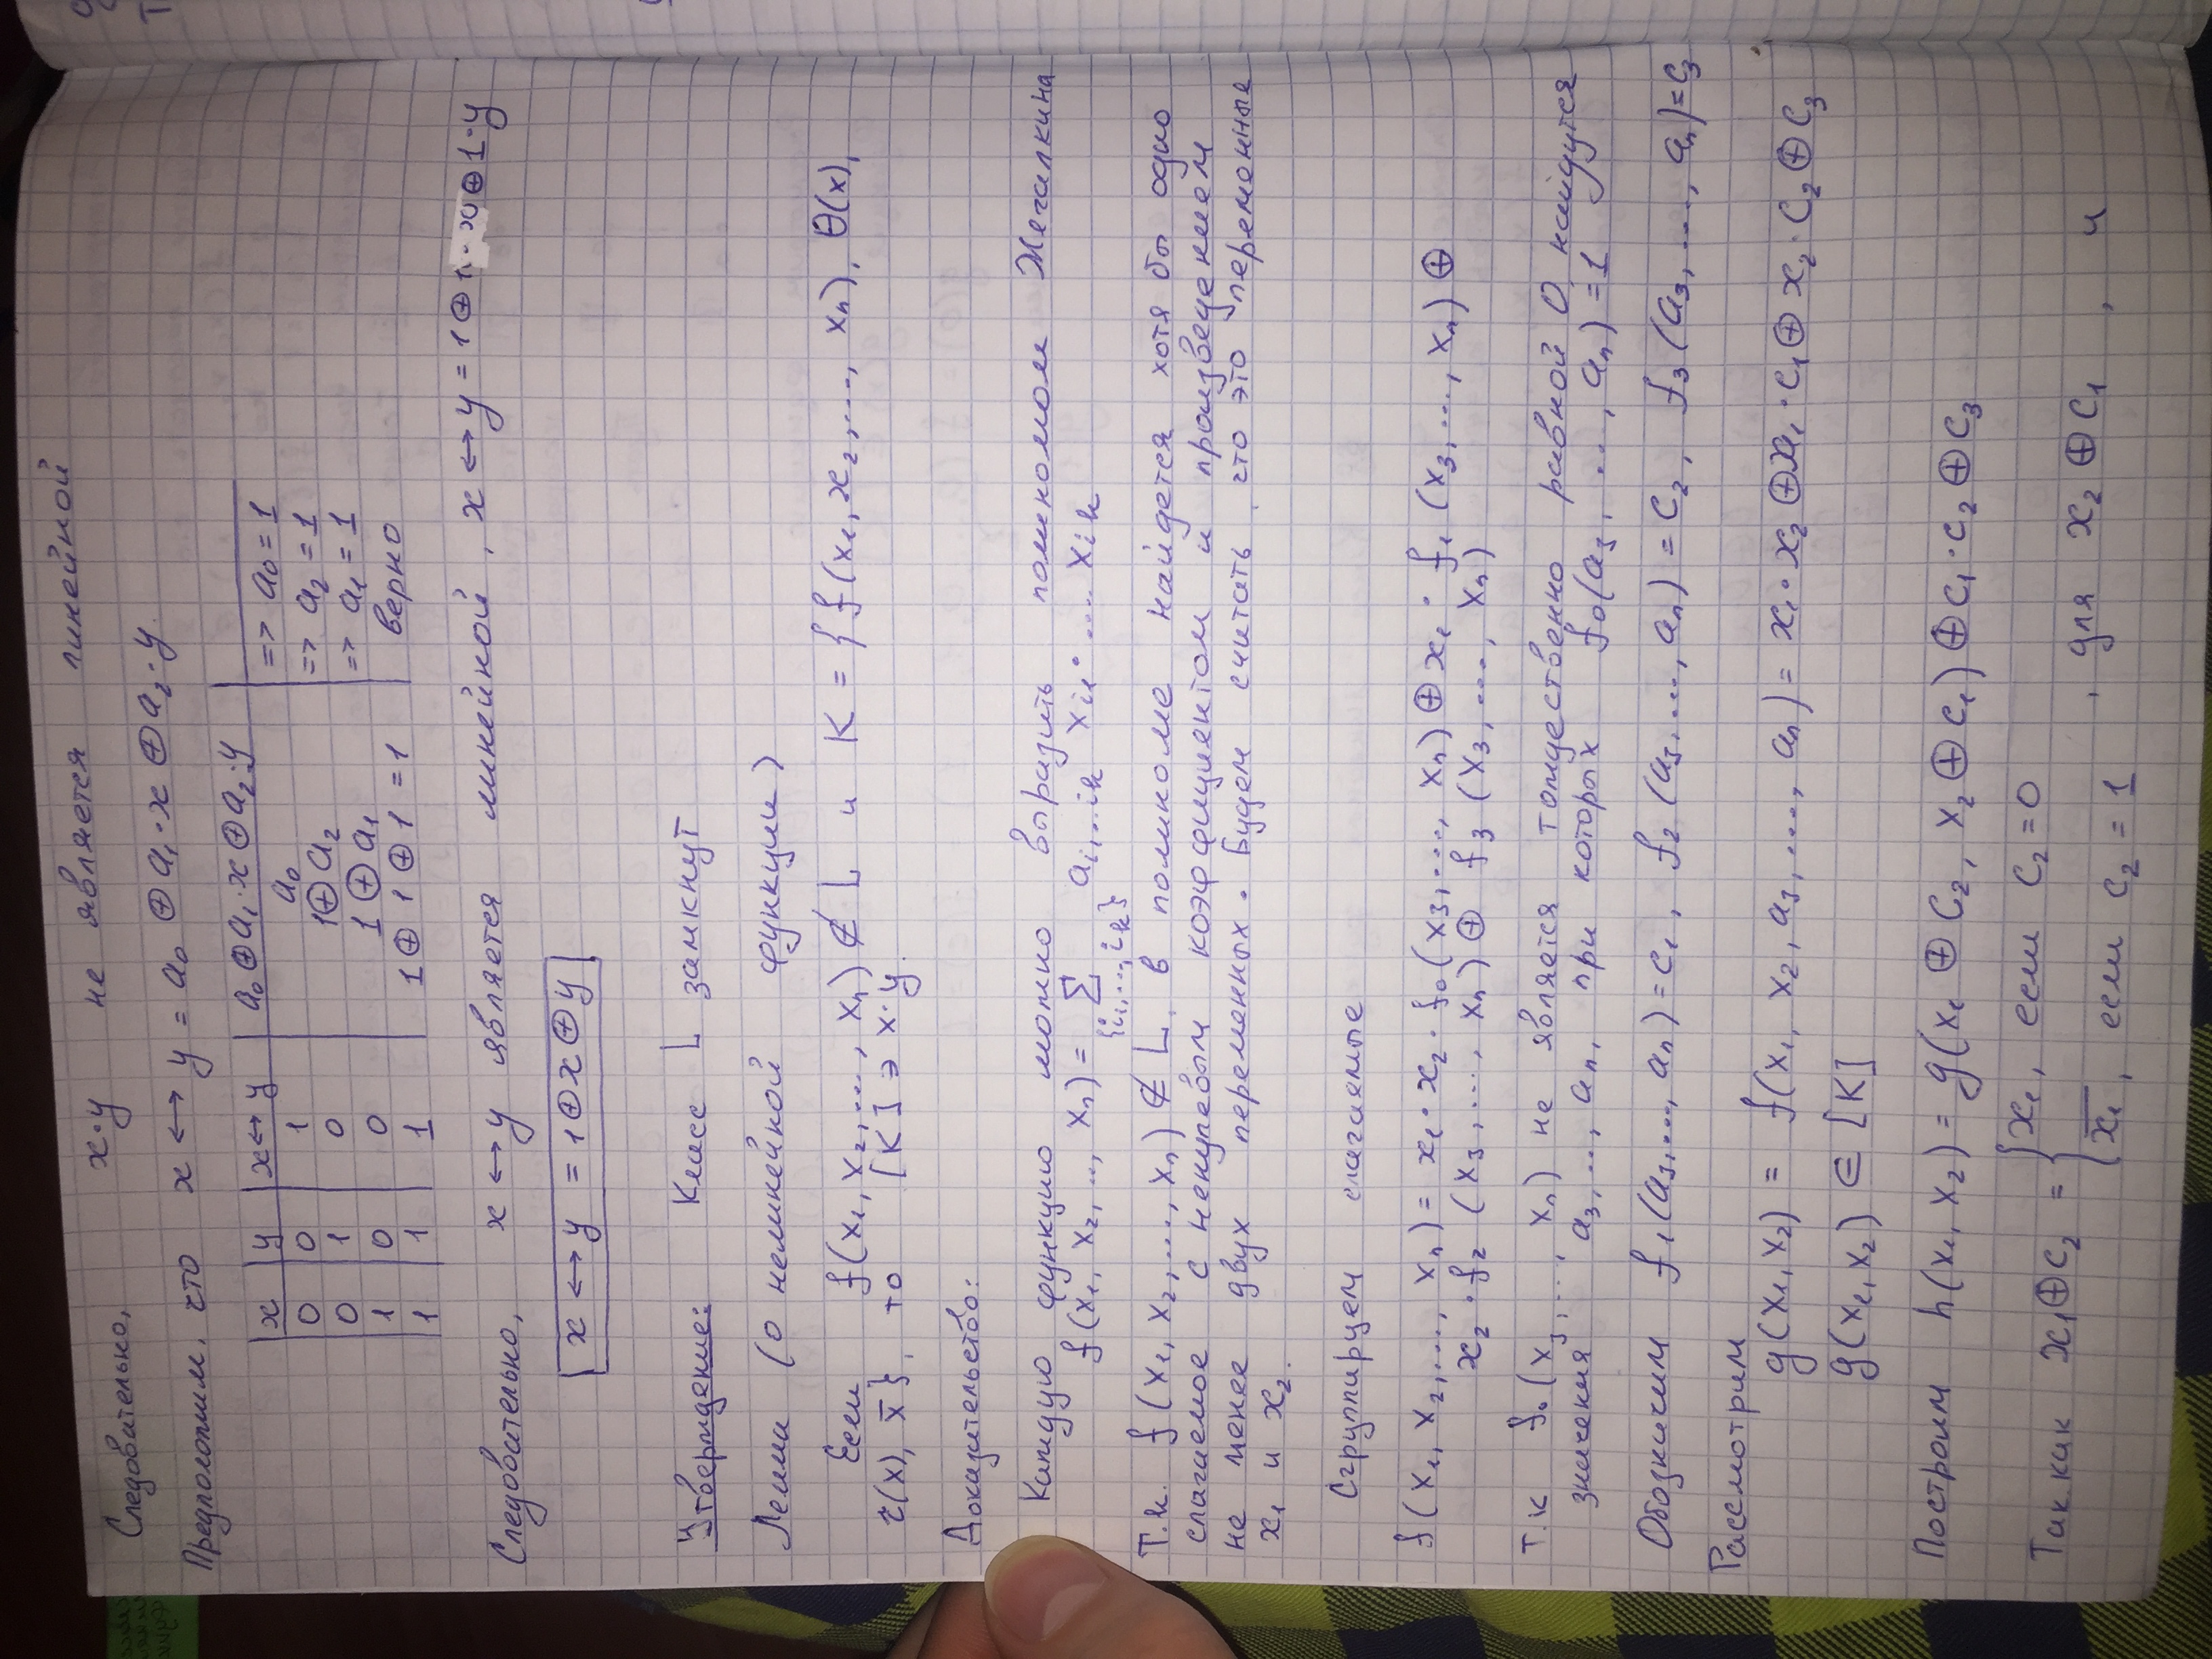 Следовательно, x·y не является линейной
Предположим, что x ↔ y = a₀ ⊕ a₁·x ⊕ a₂·y.
x | y | x ↔ y | a₀⊕a₁·x⊕a₂·y |
0 | 0 | 1 | a₀ | => a₀ = 1
0 | 1 | 0 | 1⊕a₂ | => a₂ = 1
1 | 0 | 0 | 1⊕a₁ | => a₁ = 1
1 | 1 | 1 | 1⊕1⊕1 = 1 | верно
Следовательно, x ↔ y является линейной, x ↔ y = 1⊕1·x⊕1·y
x ↔ y = 1⊕x⊕y
Утверждение: Класс L замкнут
Лемма (о нелинейной функции)
Если f(x₁, x₂, ..., xₙ) ∉ L и K = {f(x₁, x₂, ..., xₙ), θ(x),
τ(x), x̄}, то [K] ∋ x·y.
Доказательство:
Каждую функцию можно выразить полиномом Жегалкина
f(x₁, x₂, .., xₙ) = Σ_{{i₁,...,iₖ}} a_{i₁...iₖ} x_{i₁}·....x_{iₖ}
Т.к. f(x₁, x₂, ..., xₙ) ∉ L, в полиноме найдется хотя бы одно
слагаемое с ненулевым коэффициентом и произведением
не менее двух переменных. Будем считать, что это переменные
x₁ и x₂.
Сгруппируем слагаемые
f(x₁, x₂, ..., xₙ) = x₁·x₂·f₀(x₃, ..., xₙ) ⊕ x₁·f₁(x₃, ..., xₙ) ⊕
x₂·f₂(x₃, ..., xₙ) ⊕ f₃(x₃, ..., xₙ)
т.к f₀(x₃, ..., xₙ) не является тождественно равной 0, найдутся
значения a₃, .., aₙ, при которых f₀(a₃, ..., aₙ) = 1
Обозначим f₁(a₃, ..., aₙ) = c₁, f₂(a₃, ..., aₙ) = c₂, f₃(a₃, ..., aₙ) = c₃
Рассмотрим
g(x₁, x₂) = f(x₁, x₂, a₃, ..., aₙ) = x₁·x₂⊕x₁·c₁⊕x₂·c₂⊕c₃
g(x₁, x₂) ∈ [K]
Построим h(x₁, x₂) = g(x₁ ⊕ c₂, x₂ ⊕ c₁) ⊕ c₁·c₂ ⊕ c₃
x₁, если c₂ = 0
Так как x₁⊕c₂ = { , для x₂ ⊕ c₁, и
x̄₁, если c₂ = 1